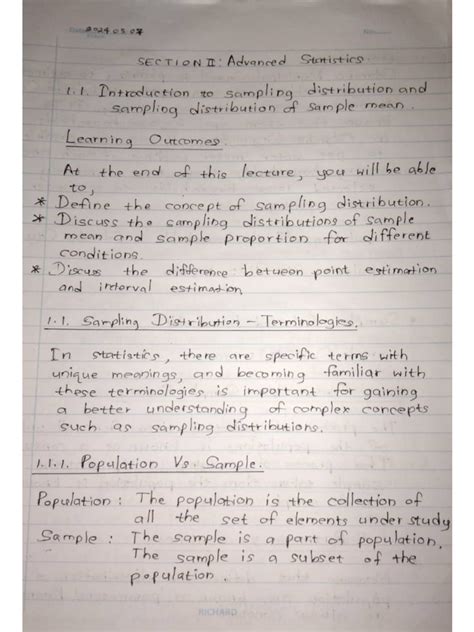 2024.03.07
No:
SECTION II: Advanced Statistics.
1.1. Introduction to sampling distribution and
sampling distribution of sample mean.
Learning Outcomes.
At the end of this lecture, you will be able
to,
* Define the concept of sampling distribution.
* Discuss the sampling distributions of sample
mean and sample proportion for different
conditions.
* Discuss the difference between point estimation
and interval estimation
1.1. Sampling Distribution - Terminologies.
In statistics, there are specific terms with
unique meanings, and becoming familiar with
these terminologies is important for gaining
a better understanding of complex concepts
such as sampling distributions.
1.1.1. Population Vs Sample.
Population : The population is the collection of
all the set of elements under study
Sample : The sample is a part of population.
The sample is a subset of the
population.
RICHARD